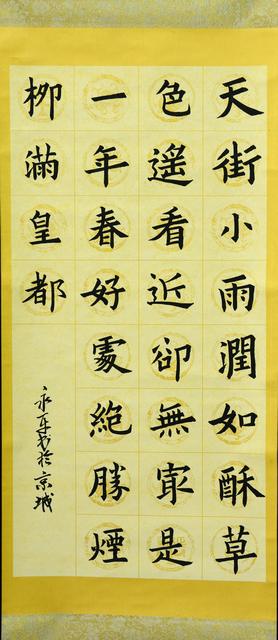 天街小雨潤如酥草
色遥看近卻無㝡是
一年春好處絶勝煙
栁滿皇都
永年书於京城